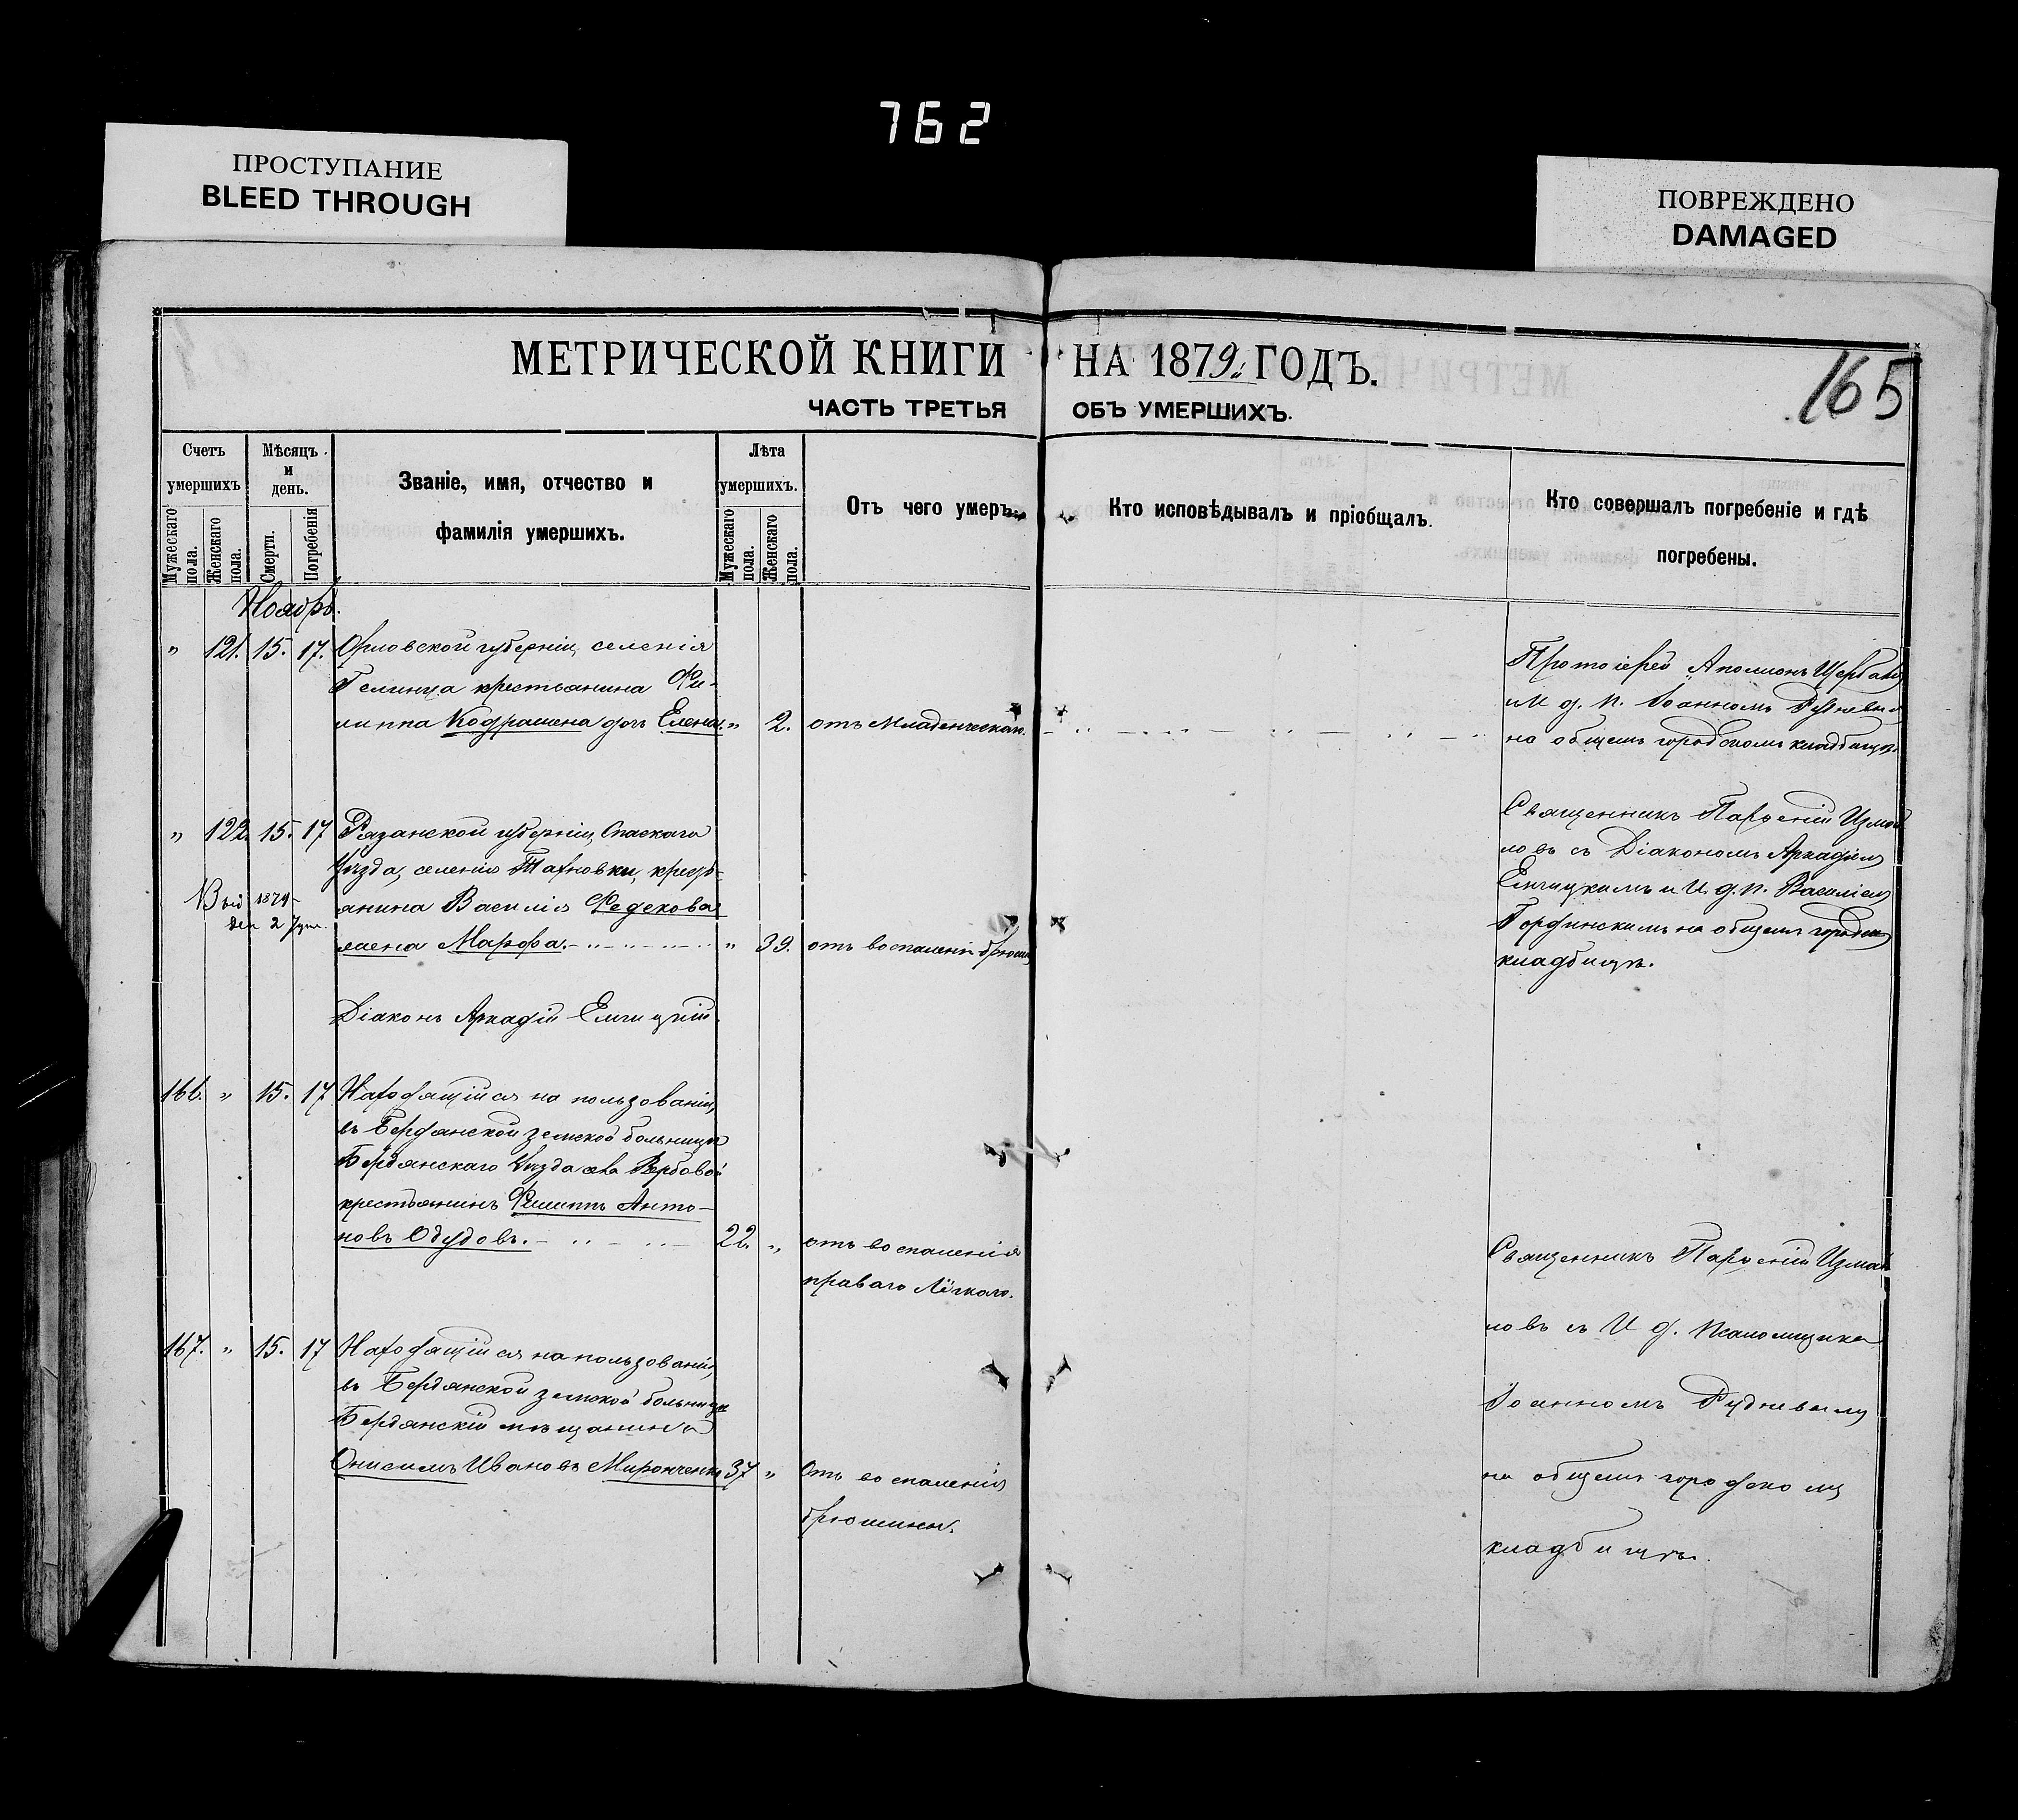 762
ПРОСТУПАНИЕ
BLEED THROUGH
ПОВРЕЖДЕНО
DAMAGED
МЕТРИЧЕСКОЙ КНИГИ НА 1879 ГОДЪ.
165
ЧАСТЬ ТРЕТЬЯ ОБЪ УМЕРШИХЪ.
Счетъ умершихъ
Мужескаго пола.
Женскаго пола.
Мѣсяцъ и день.
Смерти.
Погребенія
Званіе, имя, отчество и
фамилія умершихъ.
Лѣта умершихъ.
Мужескаго пола.
Женскаго пола.
Отъ чего умеръ.
Кто исповѣдывалъ и пріобщалъ.
Кто совершалъ погребеніе и гдѣ
погребены.
Ноябрь.
" 121. 15. 17. Орловской губерніи, селенія
крестьянина Фи-
липпа дочь Елена. " 2. отъ Младенческой.
Протоіерей Аполлонъ Щербако
и И. д. п. Іоанномъ Рудневым
на общемъ городскомъ кладбищѣ.
" 122. 15. 17 Рязанской губерніи, Спаскаго
Уѣзда, селенія крестъ-
янина Василія Федекова
жена Марфа. " 39. отъ воспаленія брюшин
1879
2
Священникъ Парѳеній Измаи
ловъ съ Діакономъ Аркадіем
Елчицкимъ и И. д. п. Василіем
на общемъ городском
кладбищѣ.
Діаконъ Аркадій Елчицкій.
166. " 15. 17 Находящійся на пользованіи,
въ Бердянской земской больницѣ
Бердянскаго Уѣзда Вербовой
крестьянинъ Филиппъ Анто-
новъ Одудовъ. 22. " отъ воспаленія
праваго Лёгкаго.
167. " 15. 17 Находящійся на пользованіи,
въ Бердянской земской больницѣ
Бердянскій мѣщанинъ
Онисимъ Ивановъ Миронченко 37 " Отъ воспаленія
брюшины.
Священникъ Парѳеній Измаи
ловъ съ И. д. Псаломщика
Іоанномъ Рудневымъ
на общемъ городскомъ
кладбищѣ.